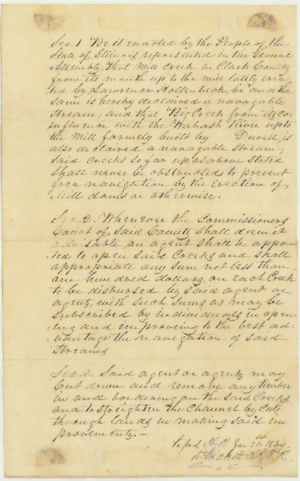 Sec. 1 Be it enacted by the People of the
State of Illinois represented in the General
Assembly, That Mill Creek in Clark County
from its mouth up to the mill lately erec
ted by Lawrence Hollenbeck be and the
same is hereby declared a navagable
Stream, and that Big Creek from its con
fluence with the Wabash River up to
the Mill formerly built by Dunst is
also declared a navagable stream;
Said Creeks so far up, as above stated
Shall never be obstructed to prevent
free navigation by the erection of
Mill dams or otherwise.
Sec. 2. Whenever the Commissioners
Court of Said County shall deem it
advisable an agent shall be appoin
ted to open said Creeks and shall
appropriate any sum not less than
one hundred dollars, on each Creek
to be disbursed by said agent or
agents, with such sums as may be
Subscribed by individuals in open
ing and improving to the best ad
vantage the navigation of said
Streams
Sec. 3. Said agent or agents may
Cut down and remove any timber
in and bordering on the Said Creeks
and to streighten the Channel by Cuts
through lands in making said im
provements. —
Jan 21st